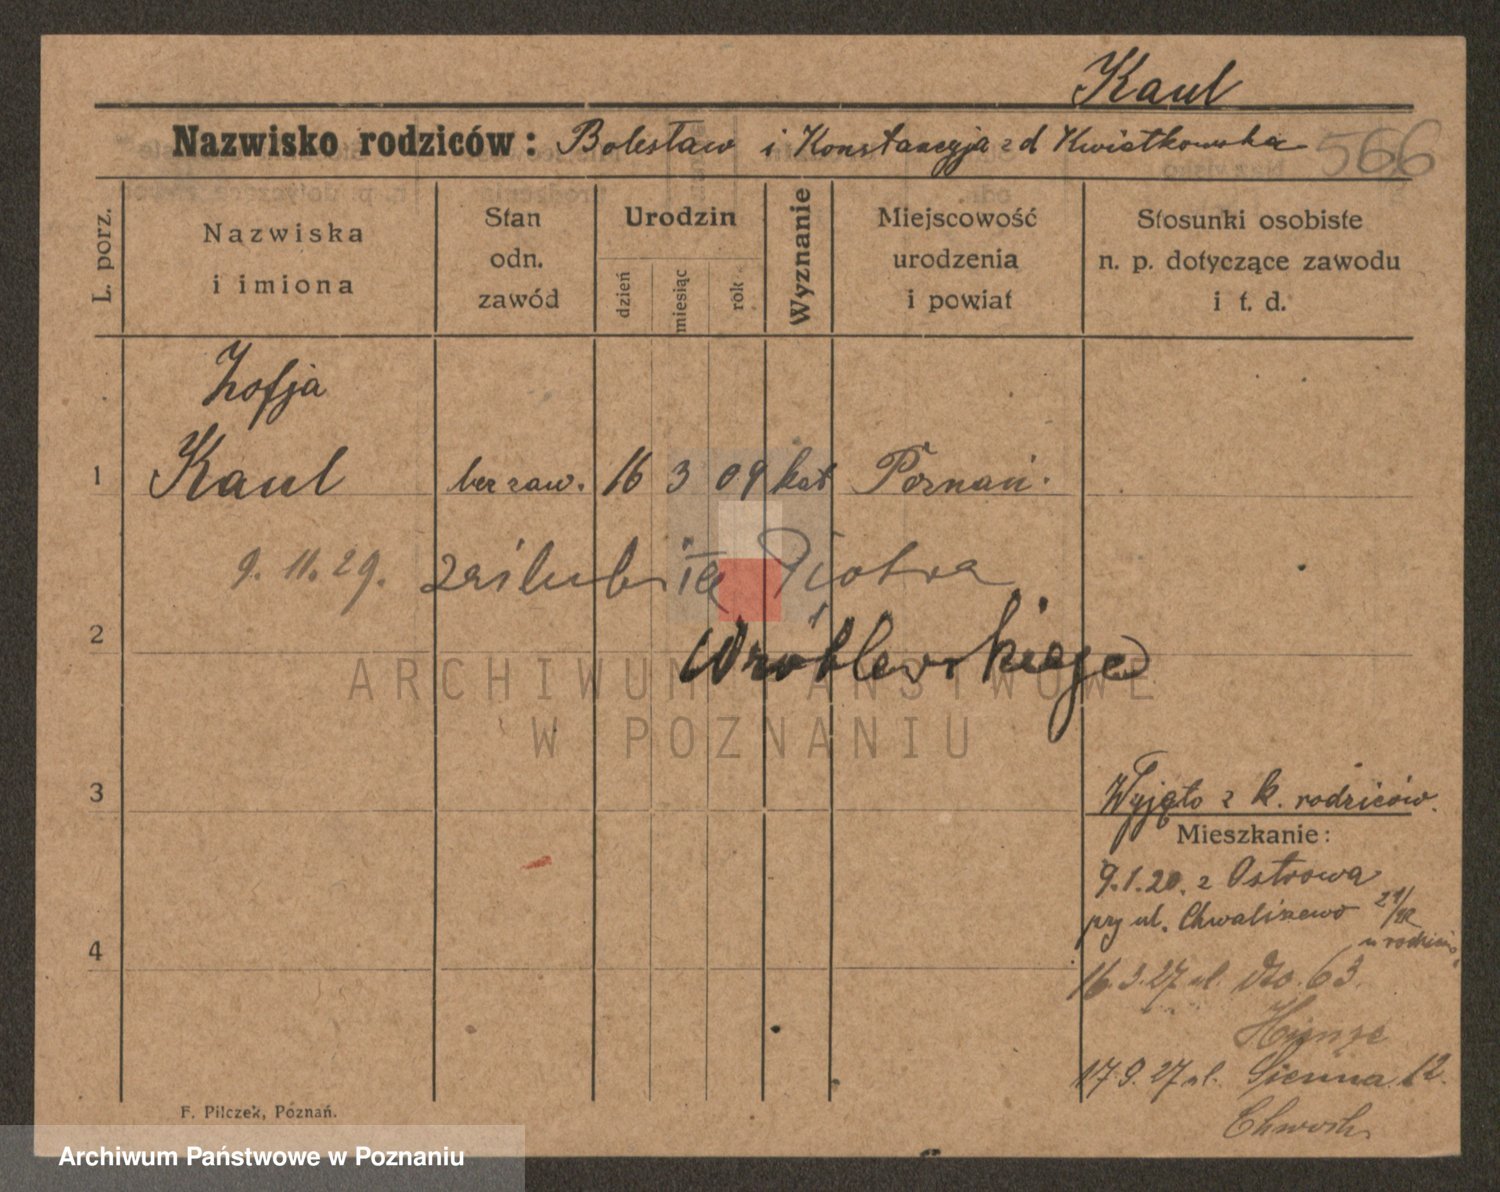 Kaul
Nazwisko rodziców: Bolesław i Konstancyja z d Kwiatkowska 566
L. porz.
Nazwiska
i imiona
Stan
odn.
zawód
Urodzin
dzień
miesiąc
rok
Wyznanie
Miejscowość
urodzenia
i powiat
Stosunki osobiste
n. p. dotyczące zawodu
i t. d.
Zofja
1 Kaul bez zaw. 16 3 09 kat Poznań.
9. 11. 29. zaślubiła Piotra
2 Wróblewskiego
ARCHIWUM PAŃSTWOWE
W POZNANIU
3 Wyjęto z k. rodziców.
Mieszkanie:
9.1.20. z Ostrowa
przy ul. Chwaliszewo 21/22
4 u rodziców
16.3.27 ul. dto. 63.
17.9.27 ul. Sienna 12.
F. Pilczek, Poznań.
Archiwum Państwowe w Poznaniu